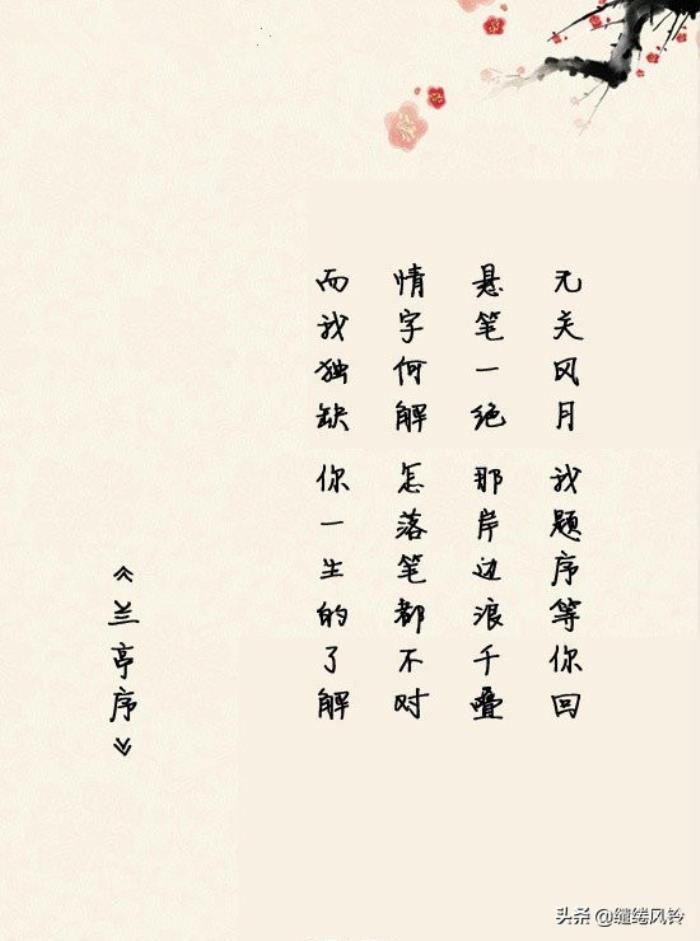 无关风月 我题序等你回
悬笔一绝 那岸边浪千叠
情字何解 怎落笔都不对
而我独缺 你一生的了解
《兰亭序》
头条 @缱绻风铃